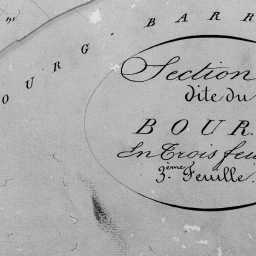 OURG. BARR
Section
dite du
BOUR
En Trois feu
3.ème Feuille